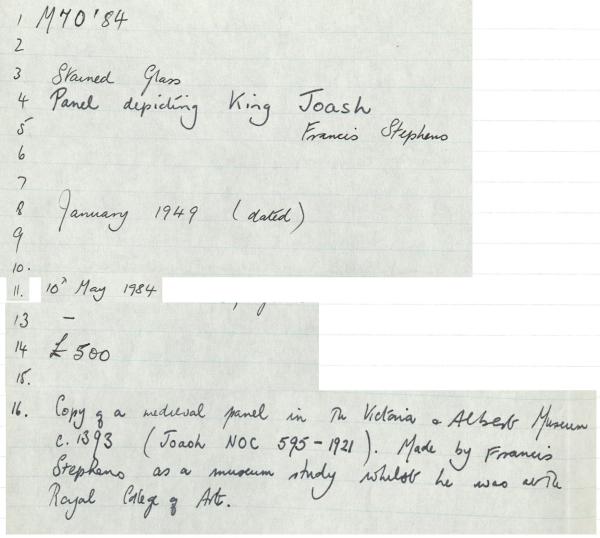 1 M70'84
2
3 Stained Glass
4 Panel depicting King Joash
5 Francis Stephens
6
7
8 January 1949 (dated)
9
10.
11. 10th May 1984
13 -
14 £500
15.
16. Copy of a medieval panel in the Victoria & Albert Museum
c. 1393 (Joash NOC 595-1921). Made by Francis
Stephens as a museum study whilst he was at the
Royal College of Art.